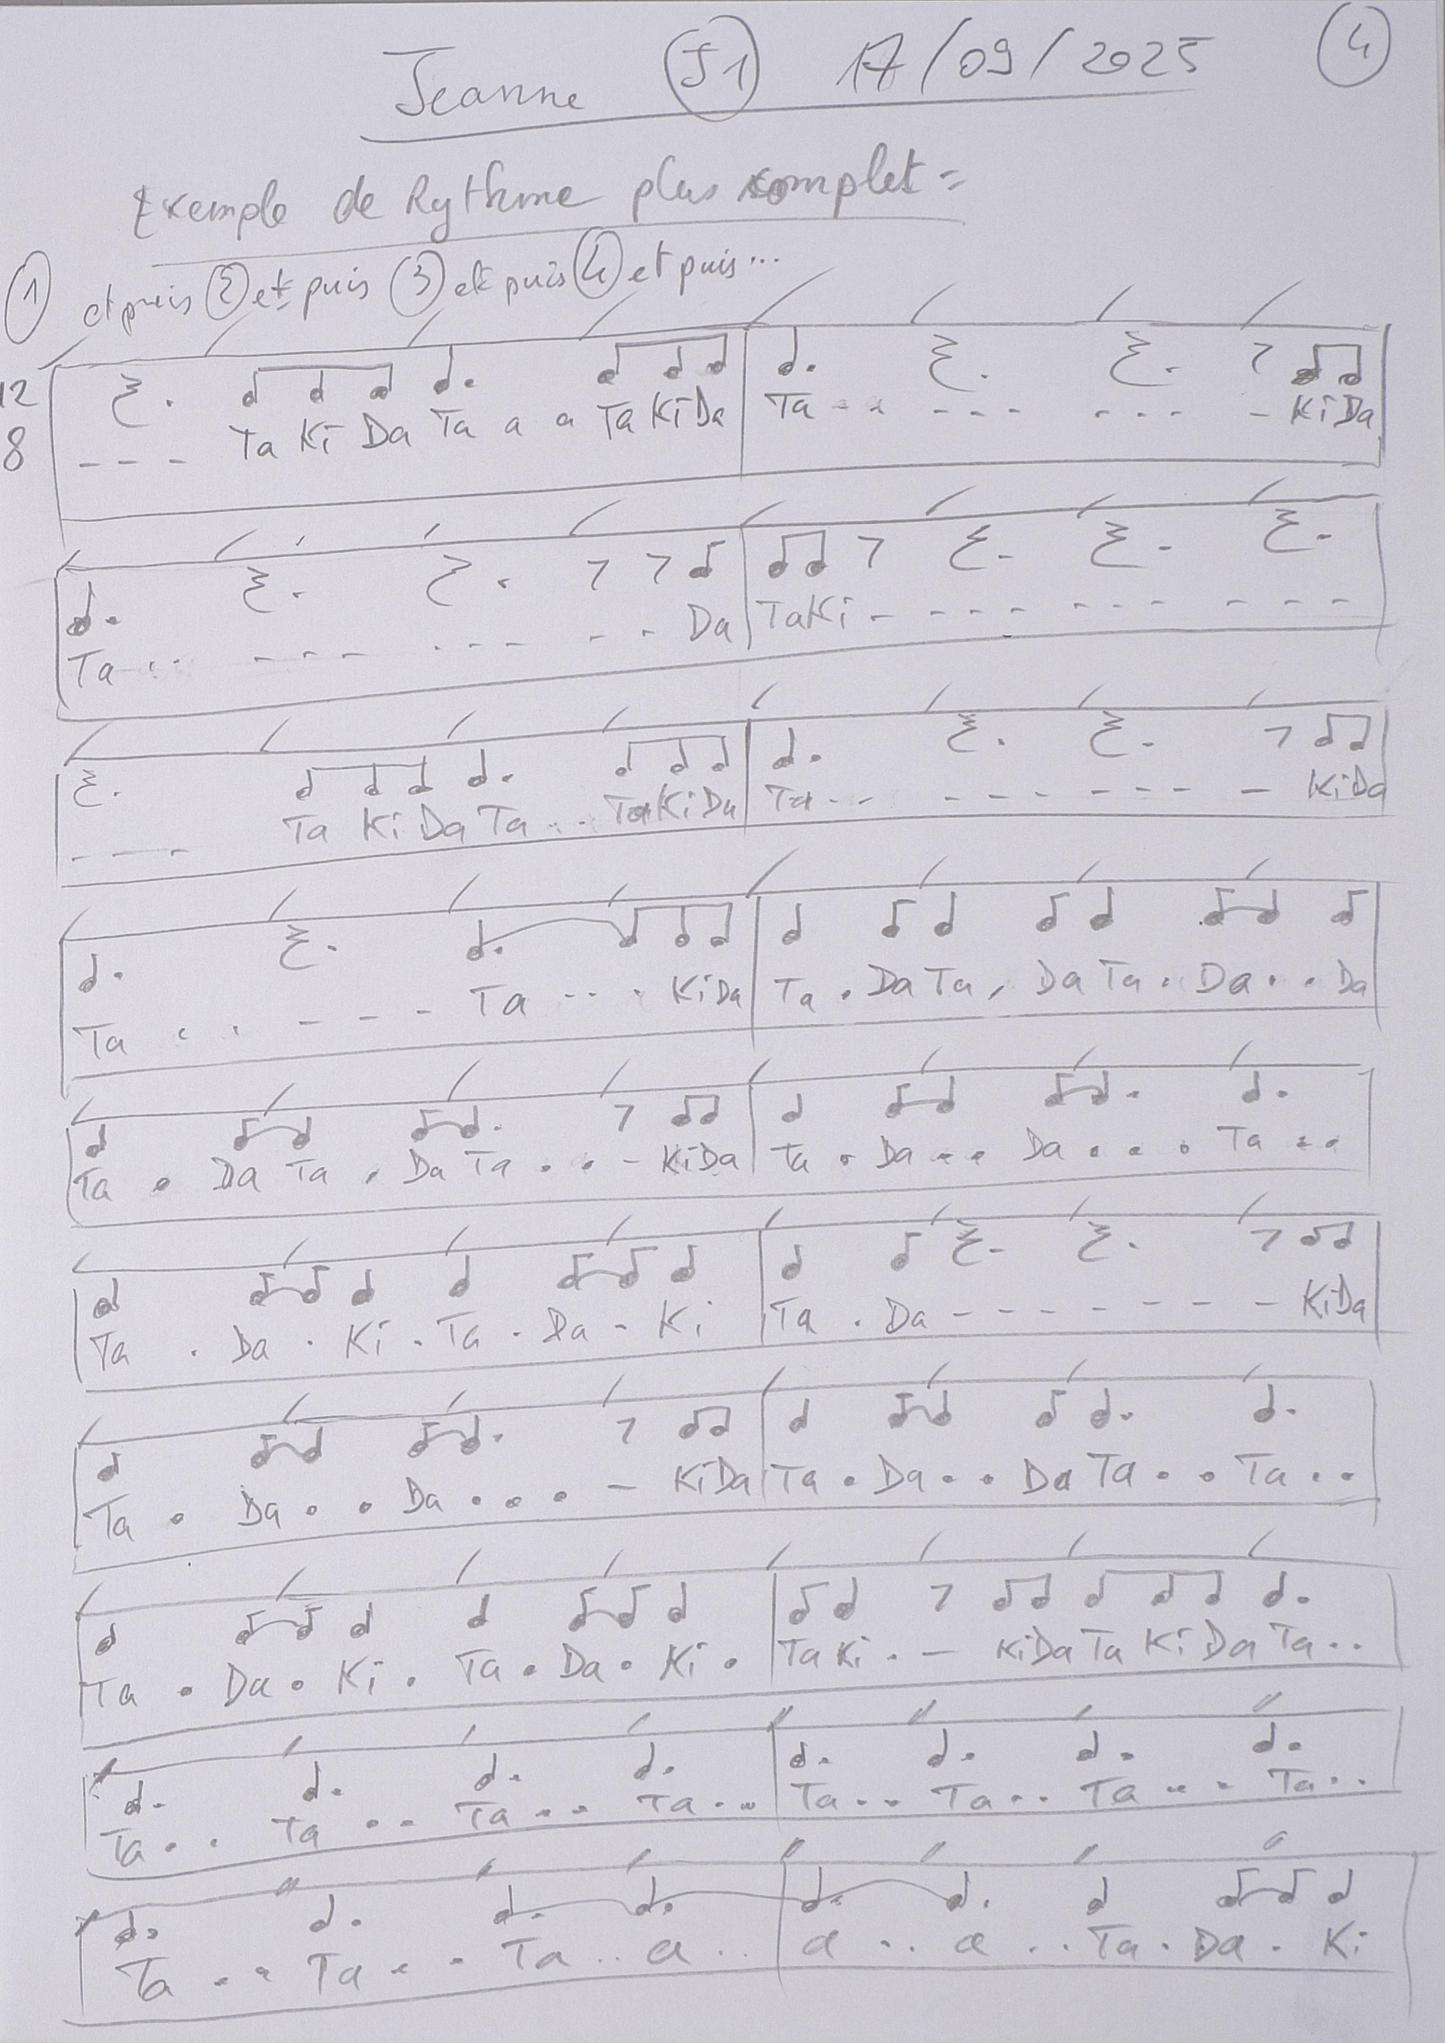 Jeanne J1 17/09/2025 4
Exemple de Rythme plus complet =
1 et puis 2 et puis 3 et puis 4 et puis...
12
8
- - - Ta Ki Da Ta a a Ta Ki Da Ta - - - - - - - - - Ki Da
Ta . . - - - - - - - - Da Ta Ki - - - - - - - - - -
- - - Ta Ki Da Ta . . Ta Ki Da Ta - - - - - - - - - Ki Da
Ta . . - - - Ta . . . Ki Da Ta . Da Ta . Da Ta . Da . . Da
Ta . Da Ta . Da Ta . . - Ki Da Ta . Da . . Da . . . Ta . .
Ta . Da . Ki . Ta . Da - Ki Ta . Da - - - - - - - Ki Da
Ta . Da . . Da . . . - Ki Da Ta . Da . . Da Ta . . Ta . .
Ta . Da . Ki . Ta . Da . Ki . Ta Ki . - Ki Da Ta Ki Da Ta . .
Ta . . Ta . . Ta . . Ta . . Ta . . Ta . . Ta . . Ta . .
Ta . . Ta . . Ta . . a . . a . . a . . Ta . Da . Ki